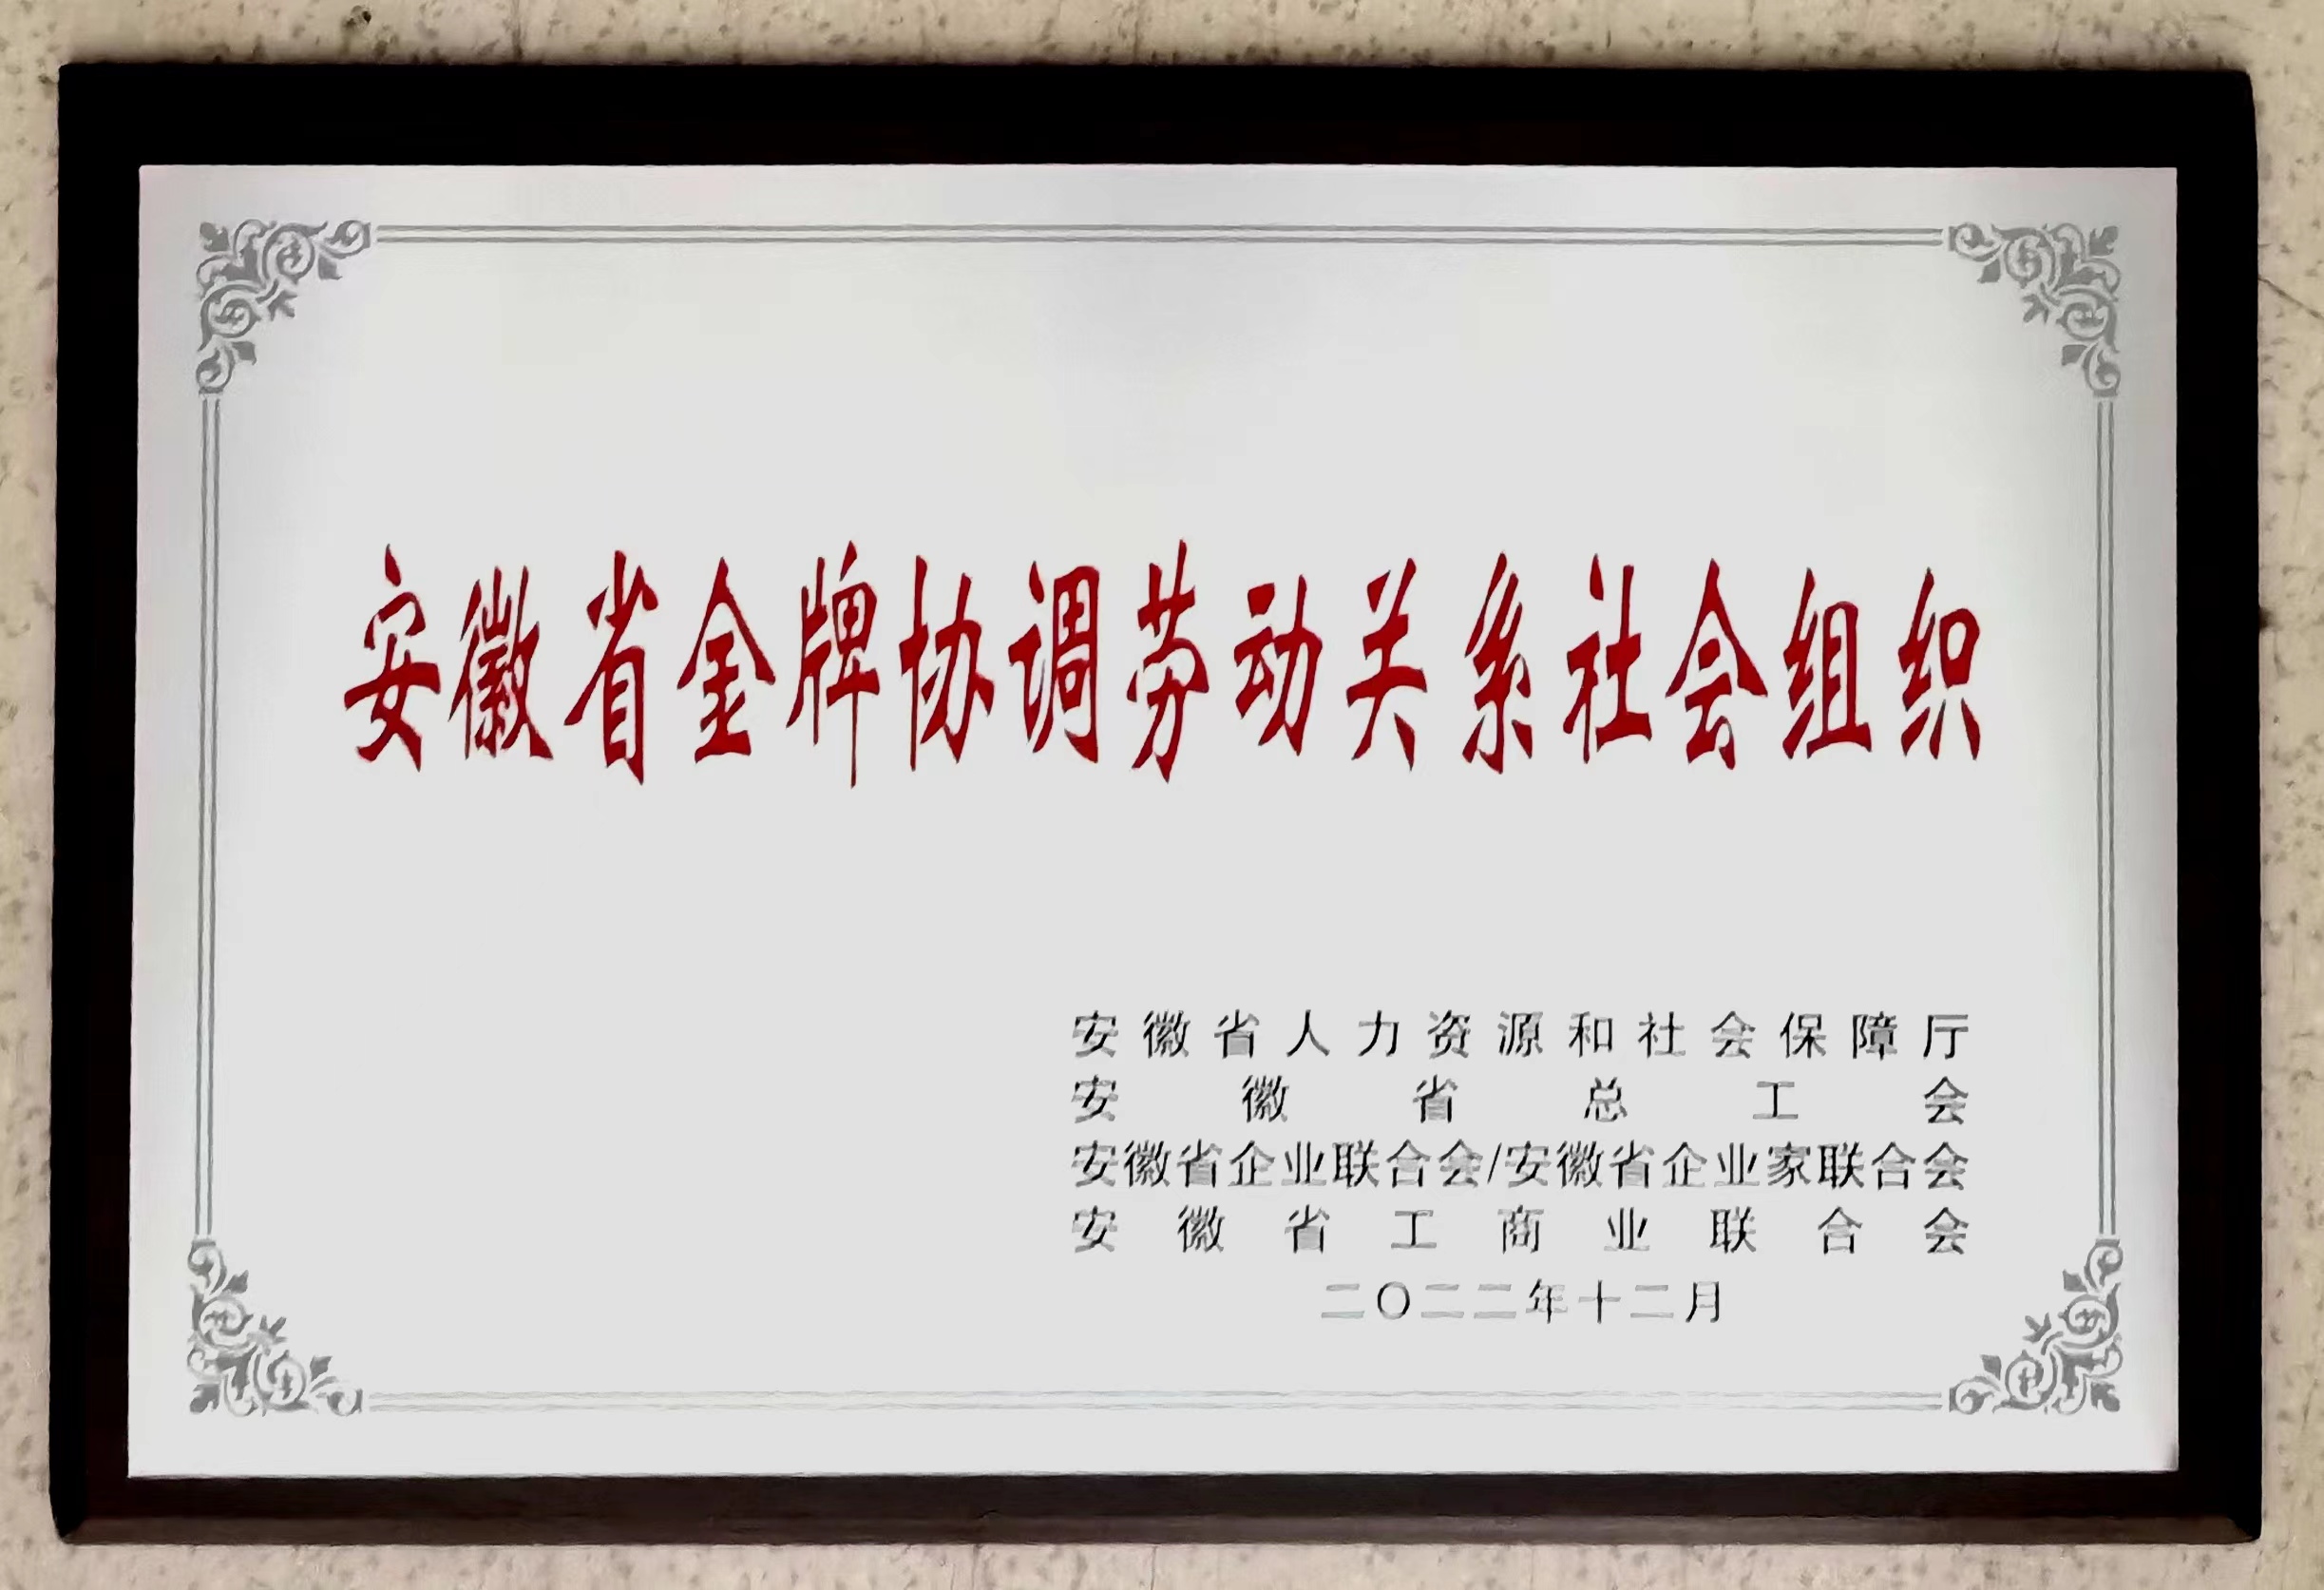 安徽省金牌协调劳动关系社会组织
安徽省人力资源和社会保障厅
安徽省总工会
安徽省企业联合会/安徽省企业家联合会
安徽省工商业联合会
二〇二二年十二月